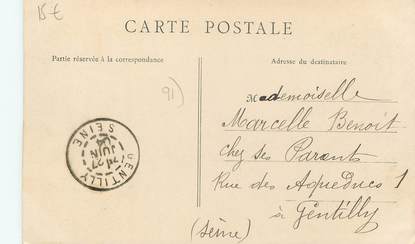 15 €
CARTE POSTALE
Partie réservée à la correspondance
Adresse du destinataire
91)
Mademoiselle
Marcelle Benoit
chez ses Parents
Rue des Aqueducs 1
à Gentilly
(Seine)
GENTILLY
27
JUIN
SEINE